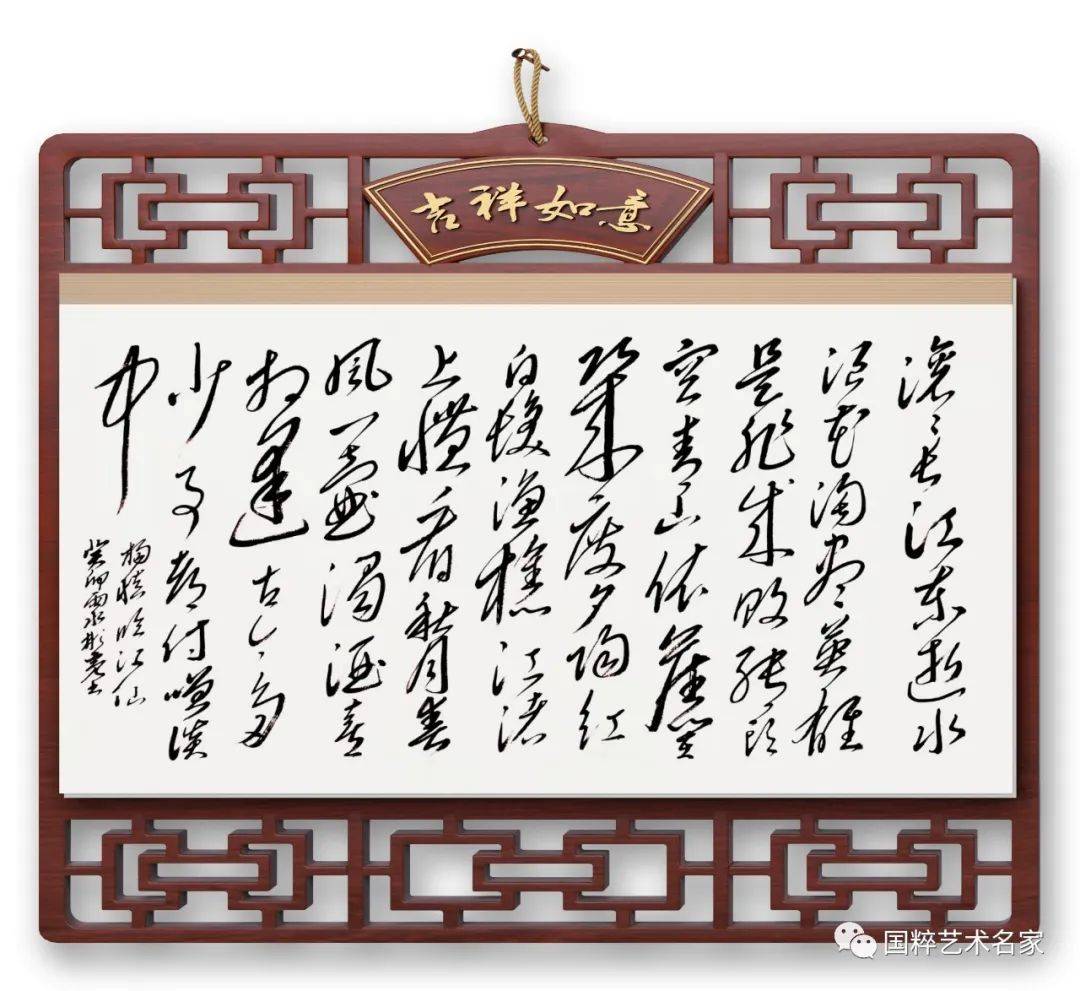 吉祥如意
滚滚长江东逝水
浪花淘尽英雄
是非成败转头
空青山依旧在
几度夕阳红
白发渔樵江渚
上惯看秋月春
風一壺濁酒喜
相逢古今多
少事都付笑谈
中
杨慎临江仙
癸卯雨水彬
国粹艺术名家